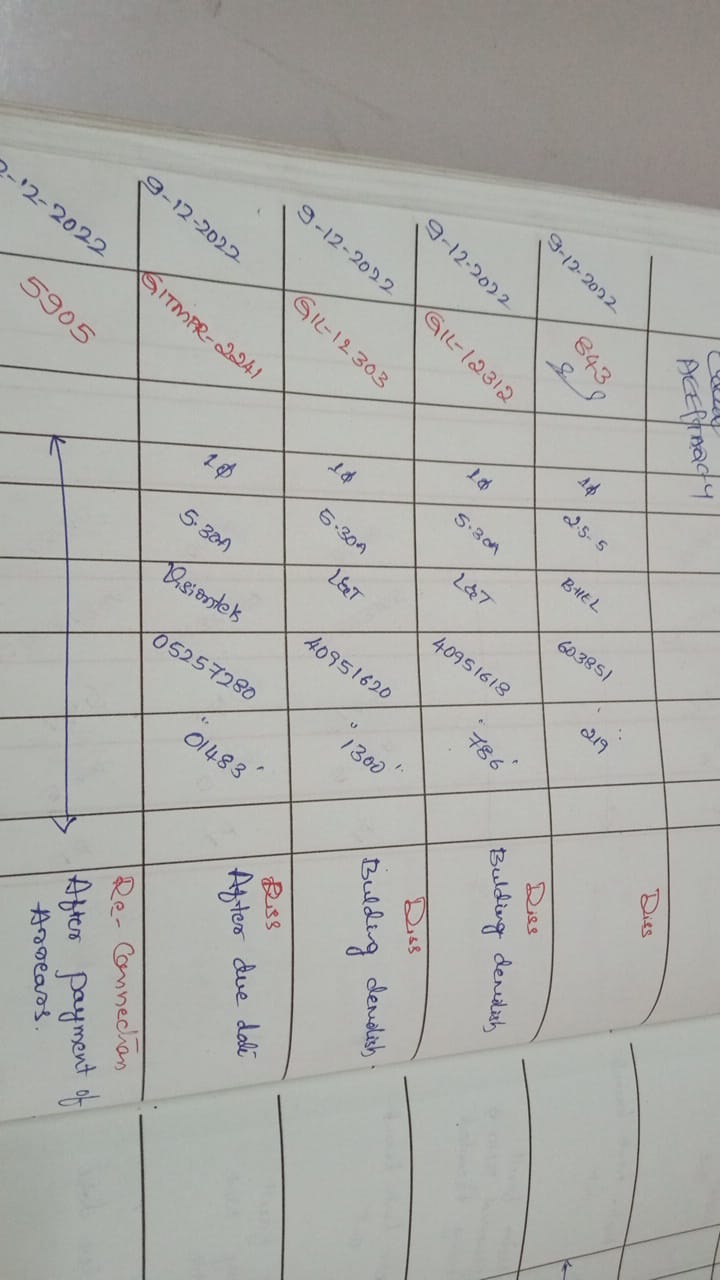 ACCEPTANCY
9-12-2022 843 1φ 2.5-5 BHEL 603851 "219" Diss
9-12-2022 GIL-12312 1φ 5-30A L&T 40951618 "786" Diss
Bulding demolish
9-12-2022 GIL-12303 1φ 5-30A L&T 40951620 "1300" Diss
Bulding demolish.
9-12-2022 GITMPR-2241 1φ 5-30A Visiontek 05257280 "01483" Diss
After due date
-12-2022 5905 Re-Connection
After payment of
Arrears.